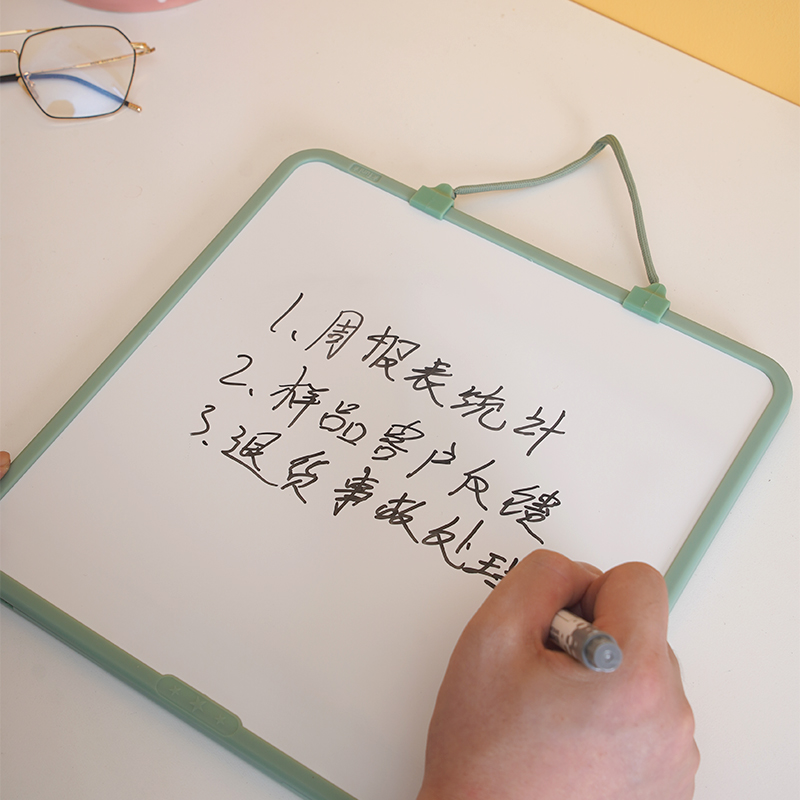 1、周报表统计
2、样品客户反馈
3、退货事故处理